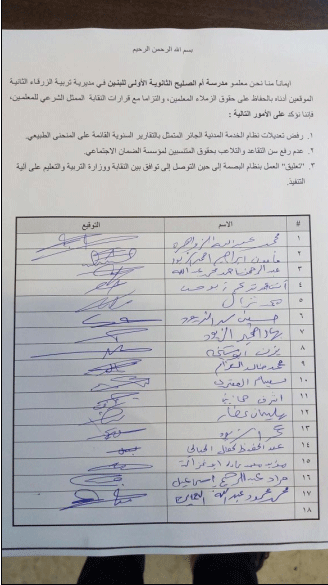 بسم الله الرحمن الرحيم
ايماناً منا نحن معلمو مدرسة أم الصليح الثانوية الأولى للبنين في مديرية تربية الزرقاء الثانية
الموقعين أدناه بالحفاظ على حقوق الزملاء المعلمين، والتزاما مع قرارات النقابة الممثل الشرعي للمعلمين،
فإننا نؤكد على الأمور التالية :
١. رفض تعديلات نظام الخدمة المدنية الجائر المتمثل بالتقارير السنوية القائمة على المنحنى الطبيعي.
٢. عدم رفع سن التقاعد والتلاعب بحقوق المنتسبين لمؤسسة الضمان الاجتماعي.
٣. "تعليق" العمل بنظام البصمة إلى حين التوصل إلى توافق بين النقابة ووزارة التربية والتعليم على آلية
التنفيذ.
# الاسم التوقيع
١ محمد عبدالله
٢ مأمون ابراهيم
٣ عبدالرحمن احمد محمد عبدالله
٤
٥
٦ حسين
٧
٨ يزن
٩ محمد خالد
١٠
١١ اشرف
١٢ سليمان
١٣
١٤ عبد الحفيظ
١٥
١٦ مراد عبد الرحيم اسماعيل
١٧ محمد محمود عبدالله
١٨